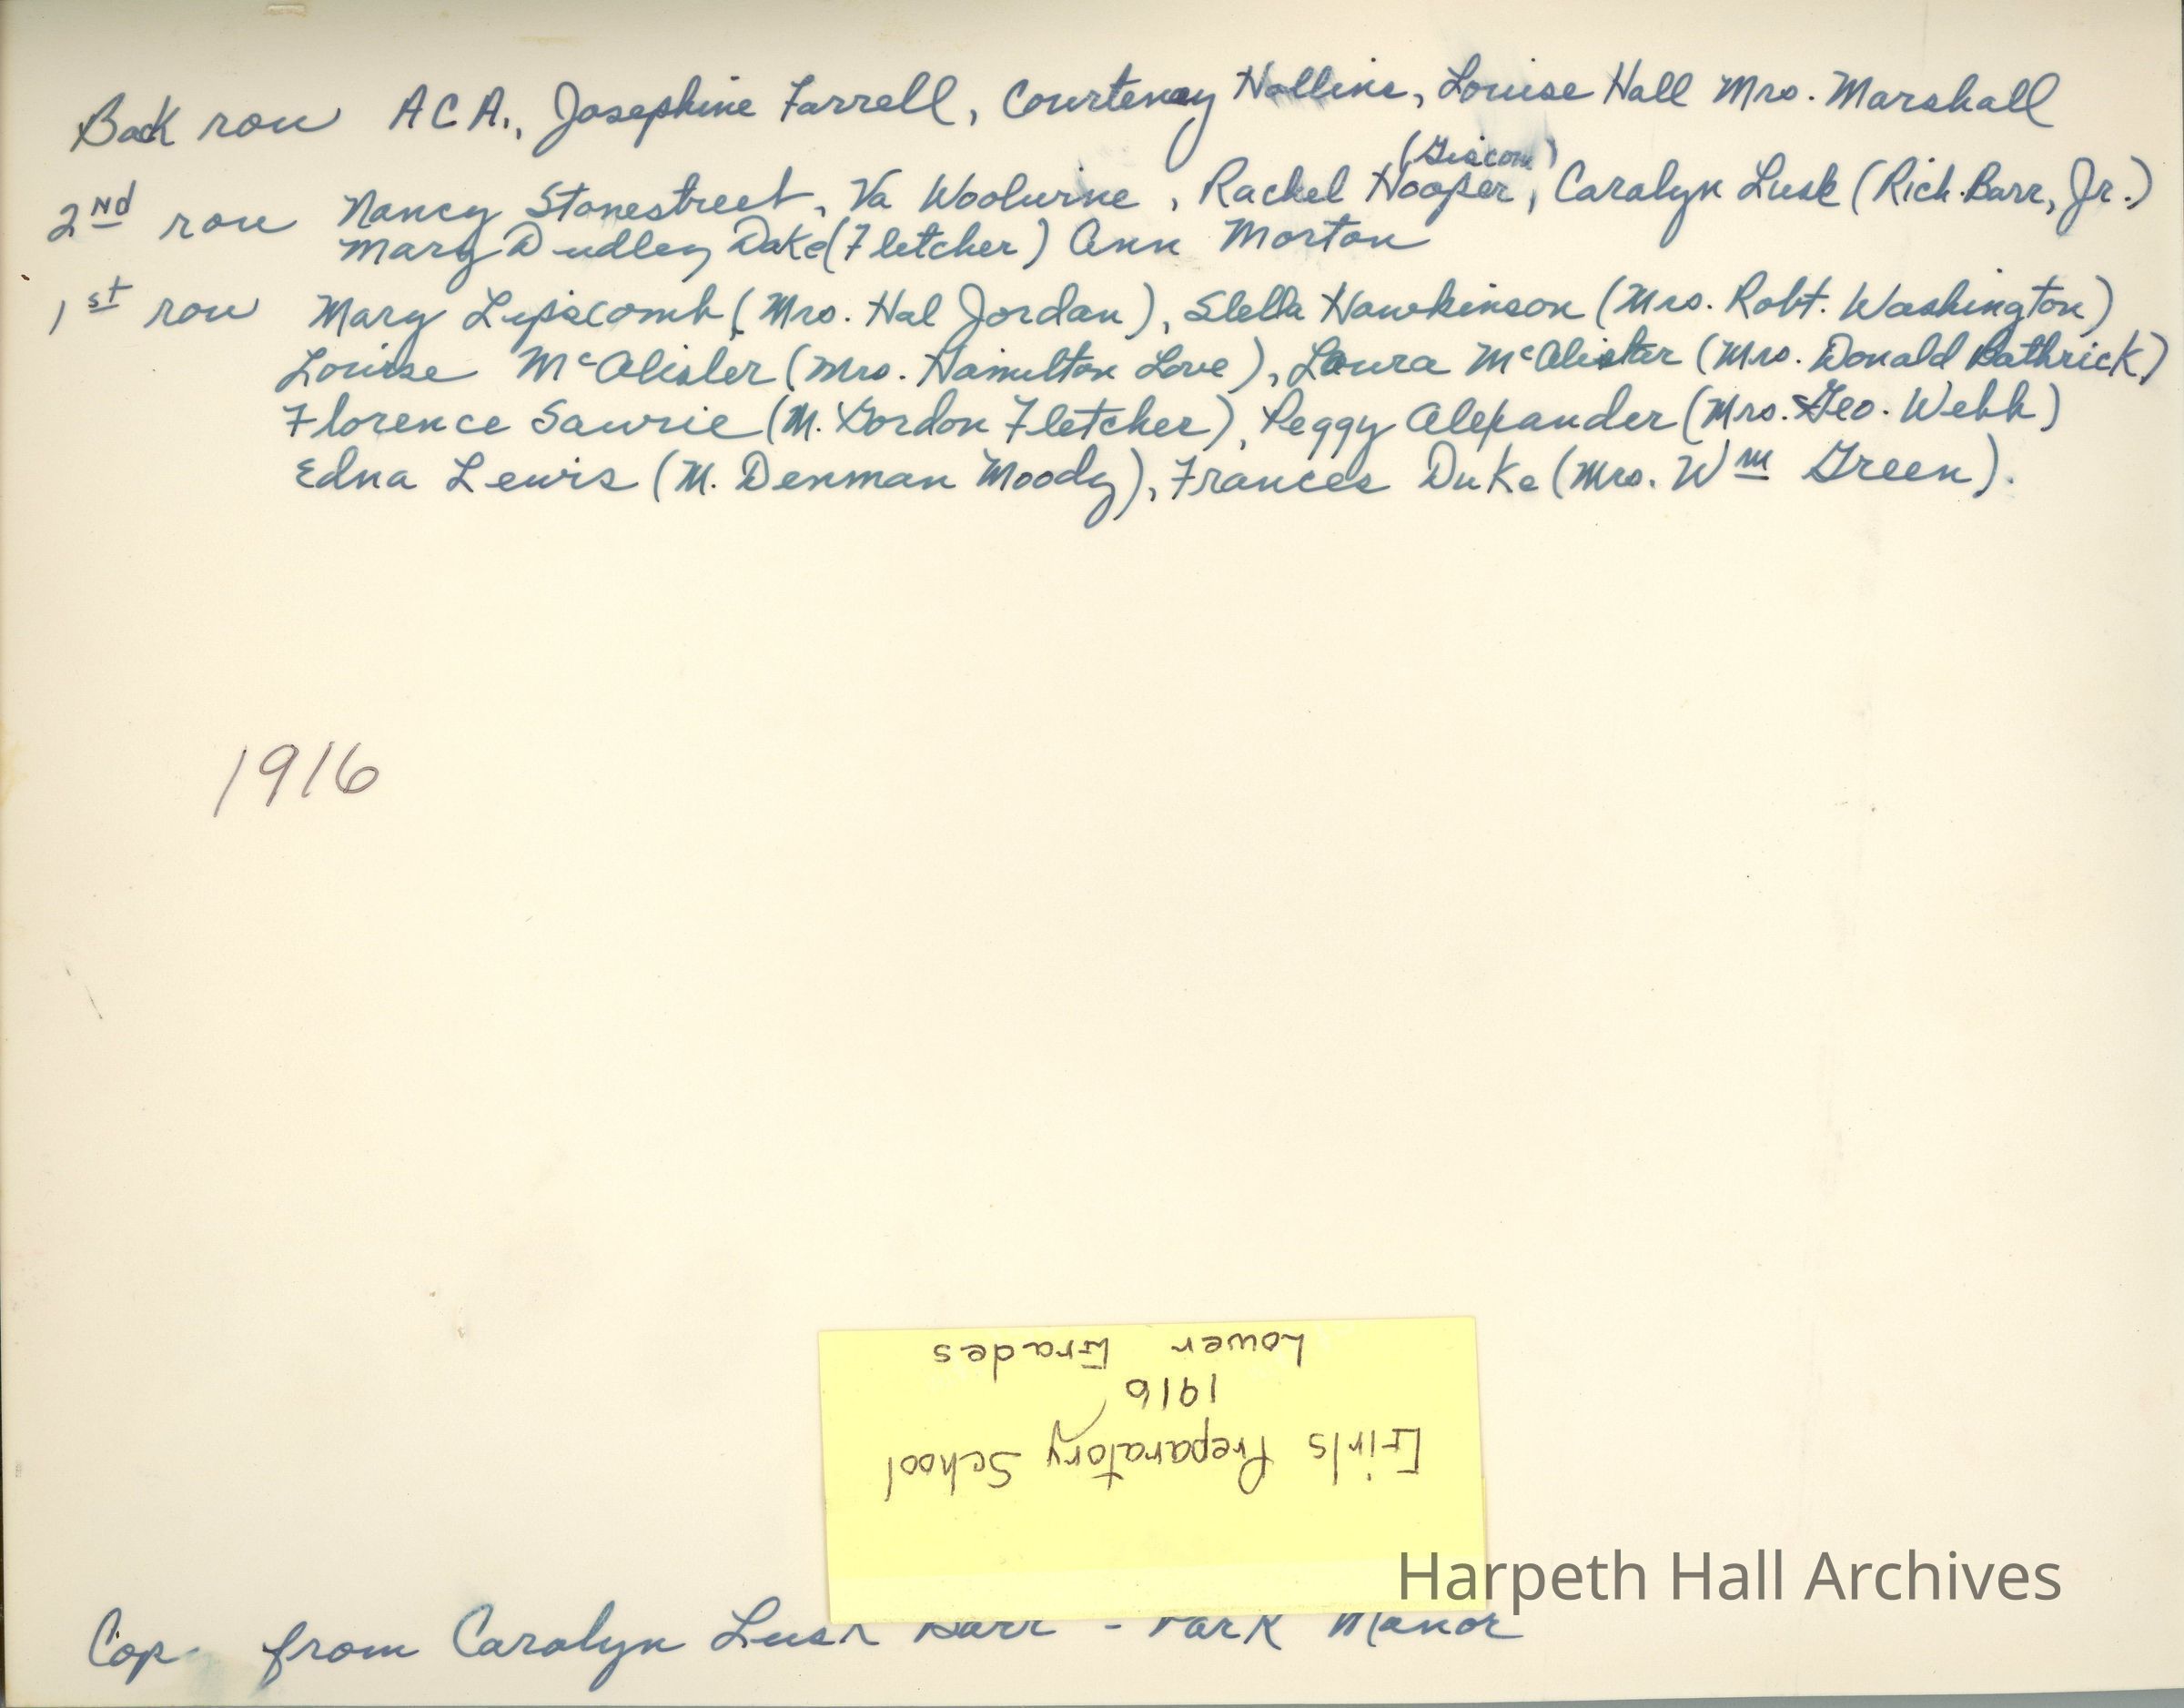 Back row ACA., Josephine Farrell, Courtenay Hollins, Louise Hall Mrs. Marshall
(Giscom)
2nd row Nancy Stonestreet, Va Woolwine, Rachel Hooper, Carolyn Lusk (Rich. Barr, Jr.)
Mary Dudley Dake (Fletcher) Ann Morton
1st row Mary Lipscomb (Mrs. Hal Jordan), Stella Hawkinson (Mrs. Robt. Washington)
Louise McAlister (Mrs. Hamilton Love), Laura McAlister (Mrs. Donald Bathrick)
Florence Sawrie (M. Gordon Fletcher), Peggy Alexander (Mrs. Geo. Webb)
Edna Lewis (M. Denman Moody), Frances Duke (Mrs. Wm Green).
1916
Girls Preparatory School
1916
Lower Grades
Harpeth Hall Archives
Cop from Carolyn Lusk Barr - Park Manor